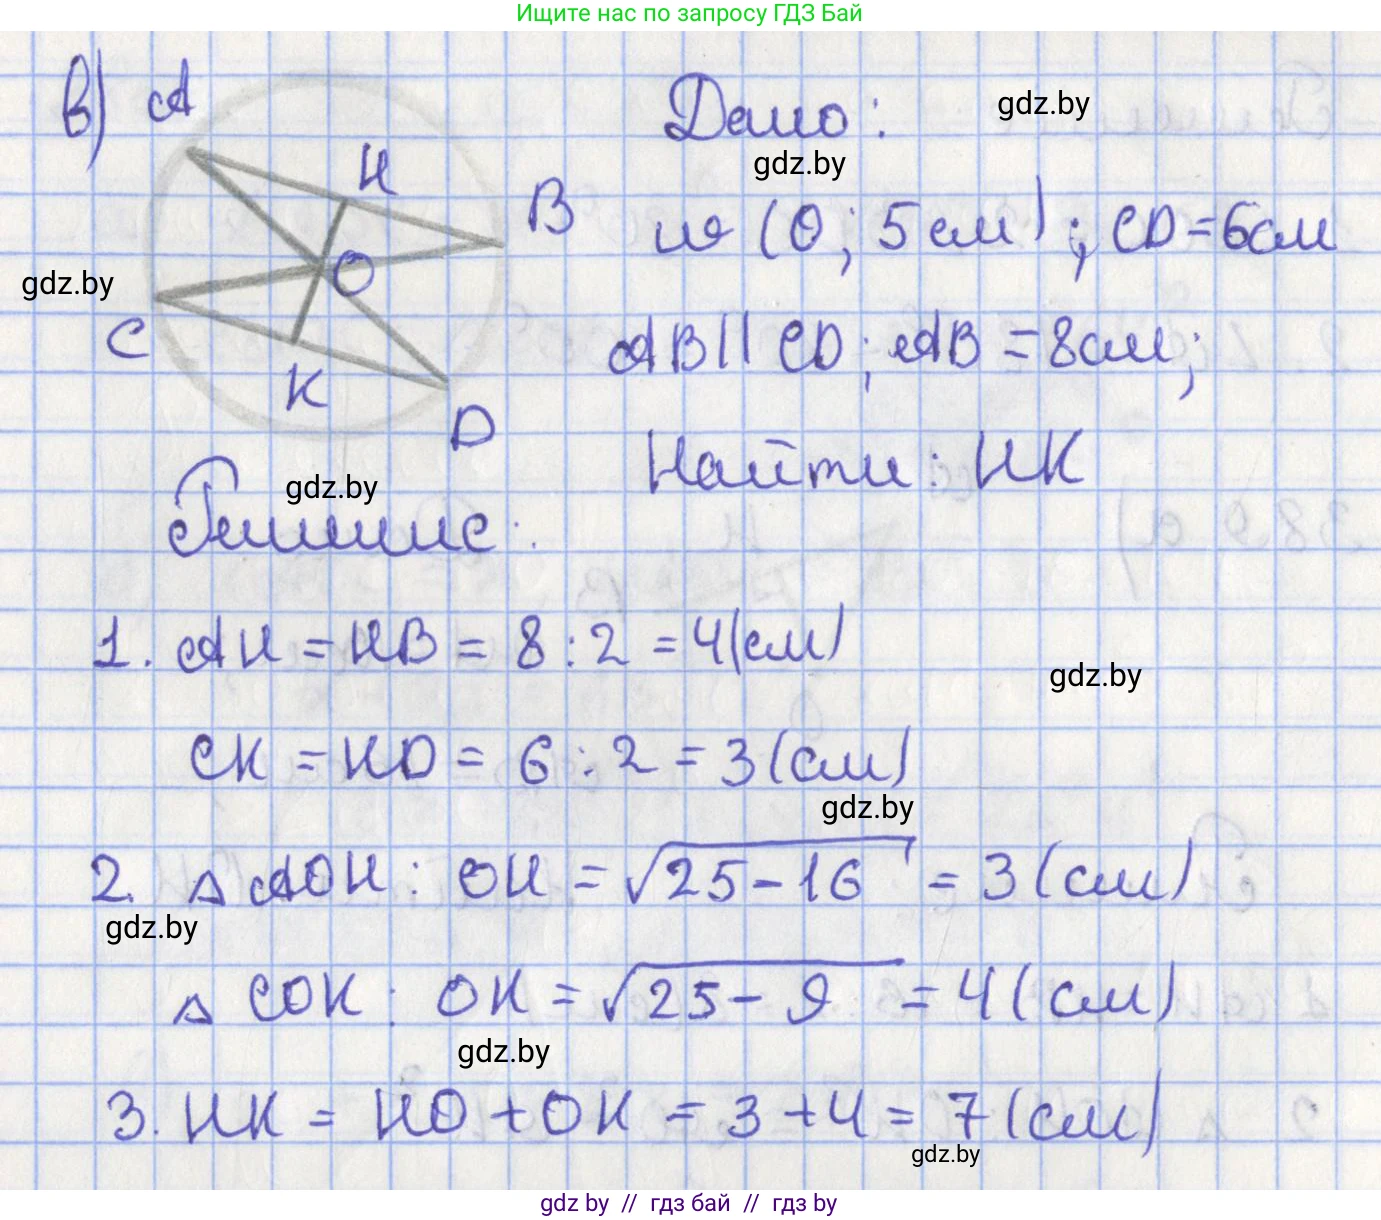 Ищите нас по запросу ГДЗ Бай
в) A
Дано:
gdz.by
gdz.by
H
B
ω (O; 5 см); CD = 6 см
O
gdz.by
C
AB || CD; AB = 8 см;
K
D
Найти: HK
gdz.by
Решение:
1. AH = HB = 8 : 2 = 4 (см)
gdz.by
CK = KD = 6 : 2 = 3 (см)
gdz.by
2. △ AOH: OH = √25 - 16 = 3 (см)
gdz.by
△ COK: OK = √25 - 9 = 4 (см)
gdz.by
3. HK = HO + OK = 3 + 4 = 7 (см)
gdz.by
gdz by // гдз бай // гдз by